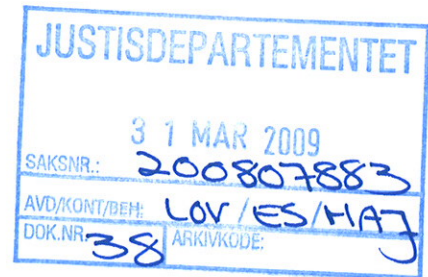 JUSTISDEPARTEMENTET
31 MAR 2009
SAKSNR.: 200807883
AVD/KONT/BEH: LOV/ES/HAJ
DOK.NR. 38 ARKIVKODE: